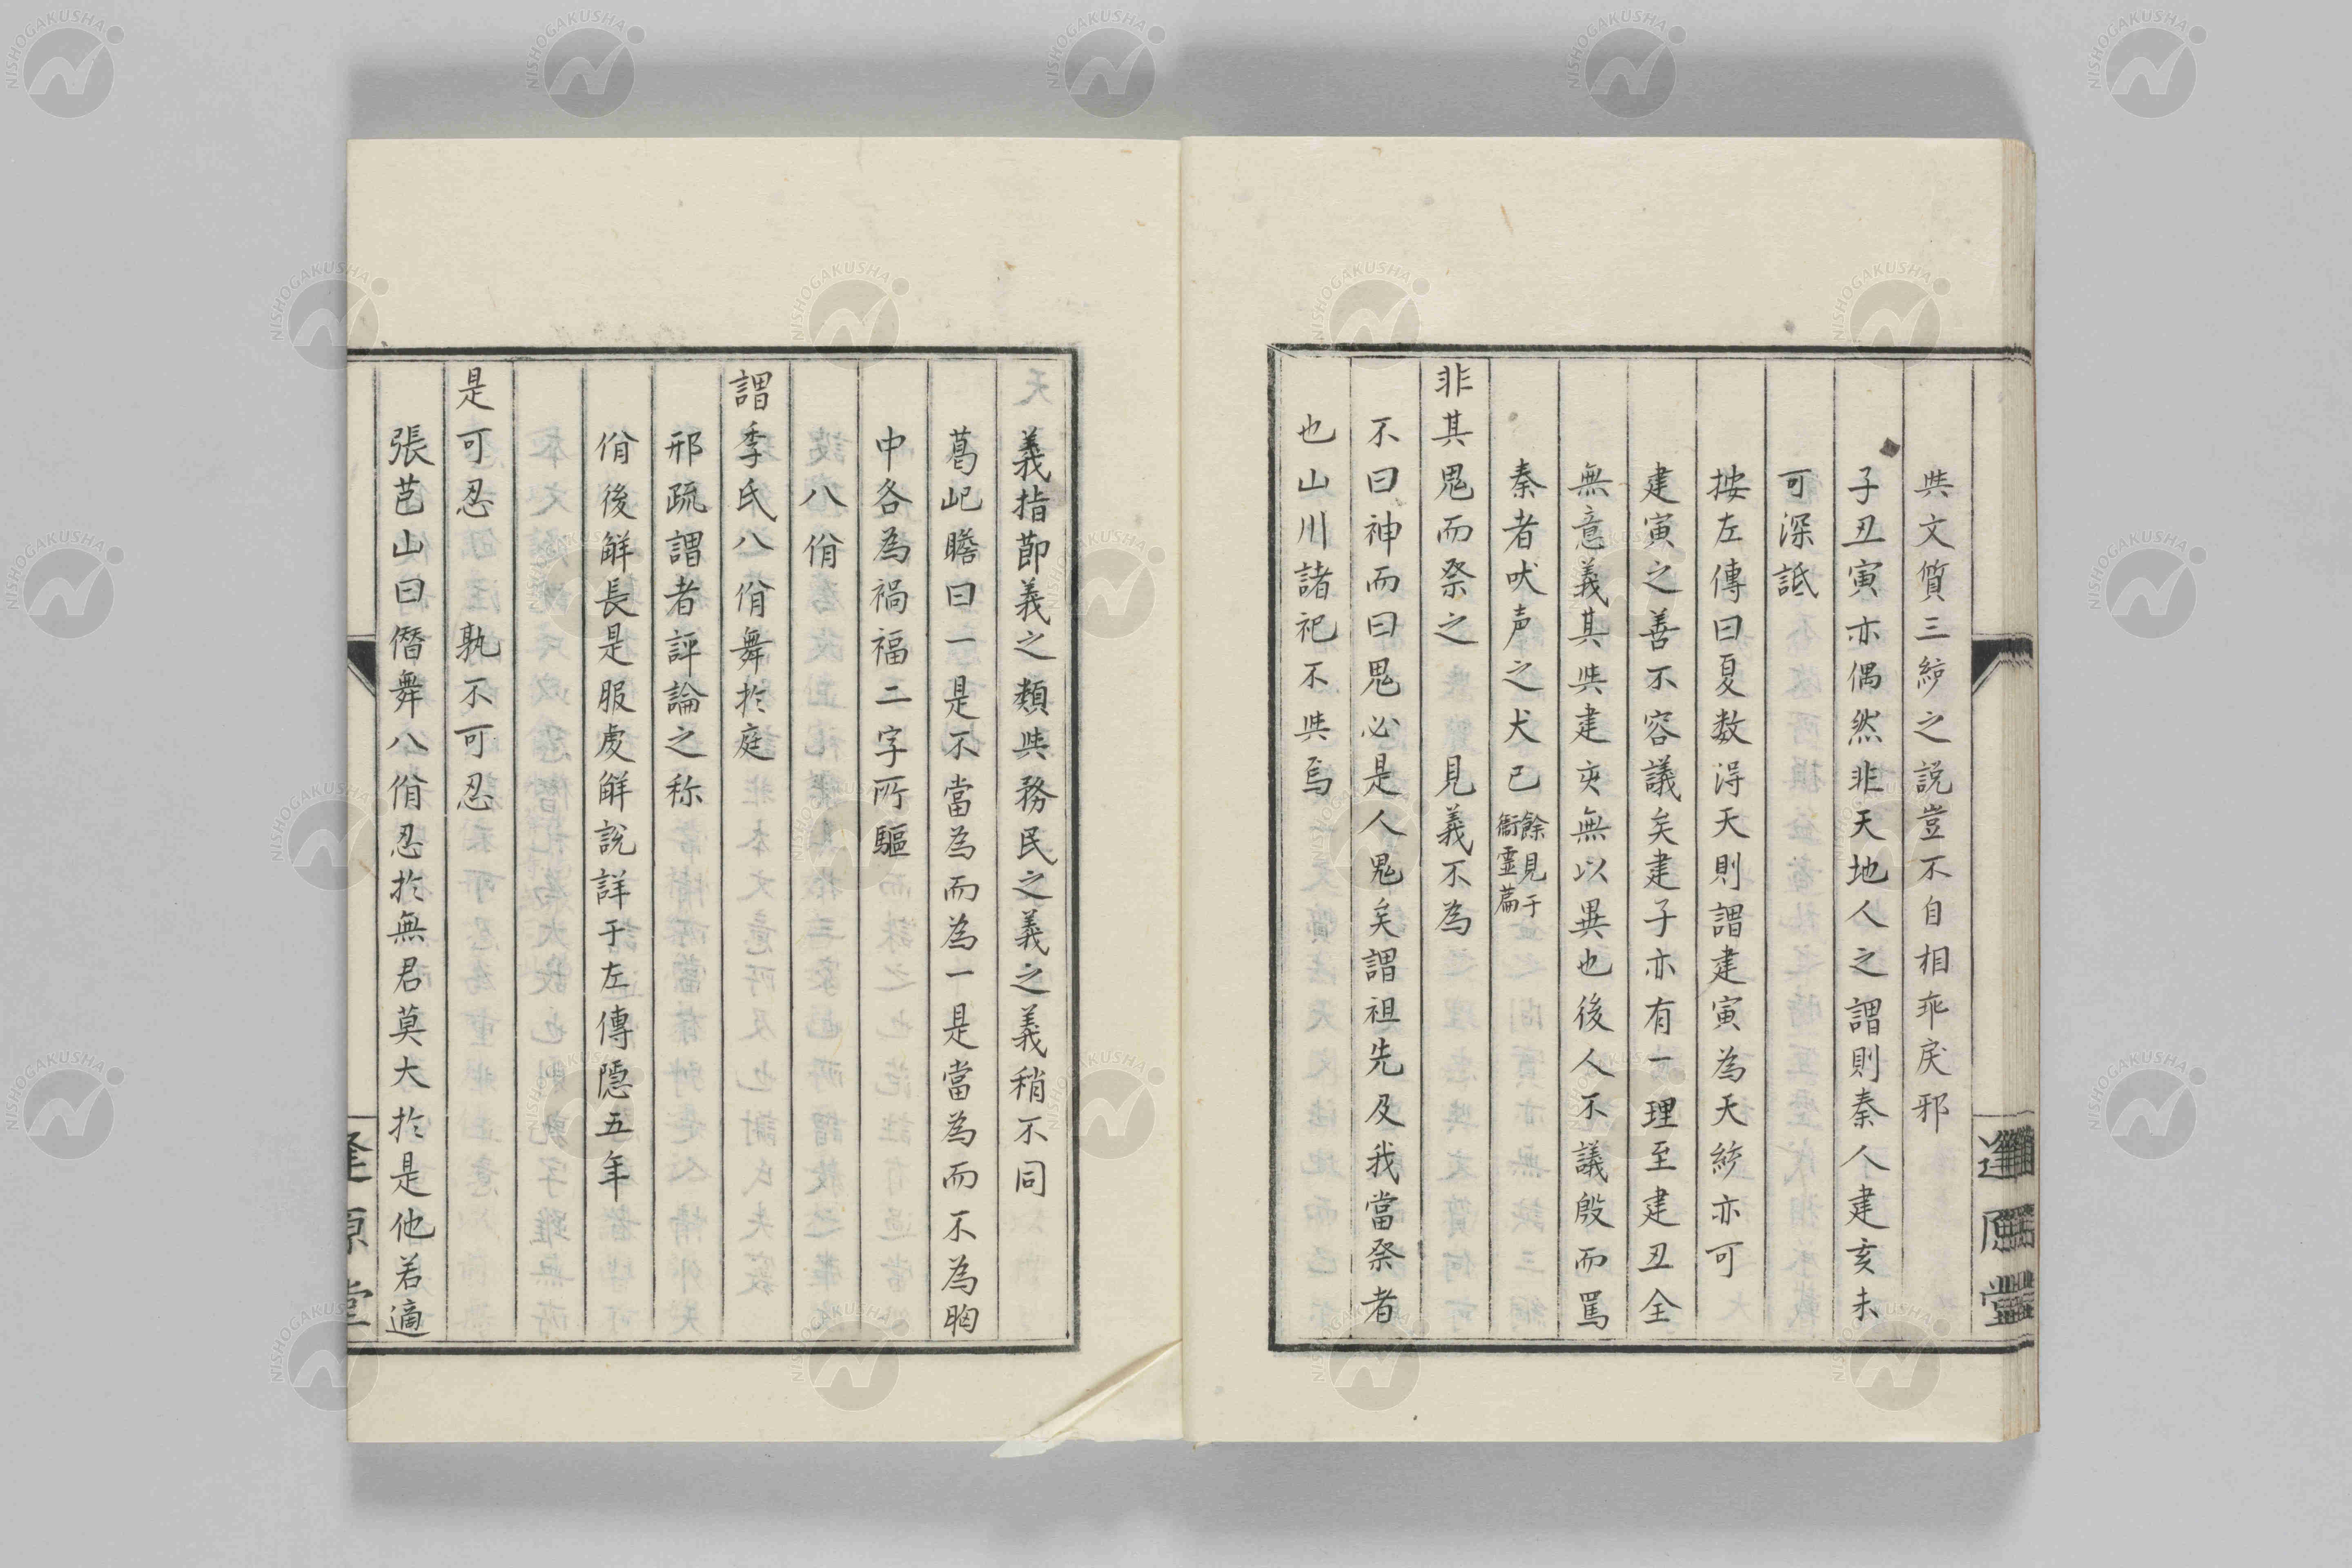 與文質三統之説豈不自相乖戾邪
子丑寅亦偶然非天地人之謂則秦人建亥未
可深詆
按左傳曰夏数得天則謂建寅為天統亦可
建寅之善不容議矣建子亦有一理至建丑全
無意義其與建亥無以異也後人不議殷而罵
秦者吠声之犬已餘見于
衞霊篇
非其鬼而祭之　見義不為
不曰神而曰鬼必是人鬼矣謂祖先及我當祭者
也山川諸祀不與焉
逢原堂
義指節義之類與務民之義之義稍不同
葛屺瞻曰一是不當為而為一是當為而不為胸
中各為禍福二字所驅
八佾
謂季氏八佾舞於庭
邢疏謂者評論之称
佾後觧長是服虔觧説詳于左傳隠五年
是可忍孰不可忍
張芑山曰僭舞八佾忍於無君莫大於是他若適
逢原堂
NISHOGAKUSHA